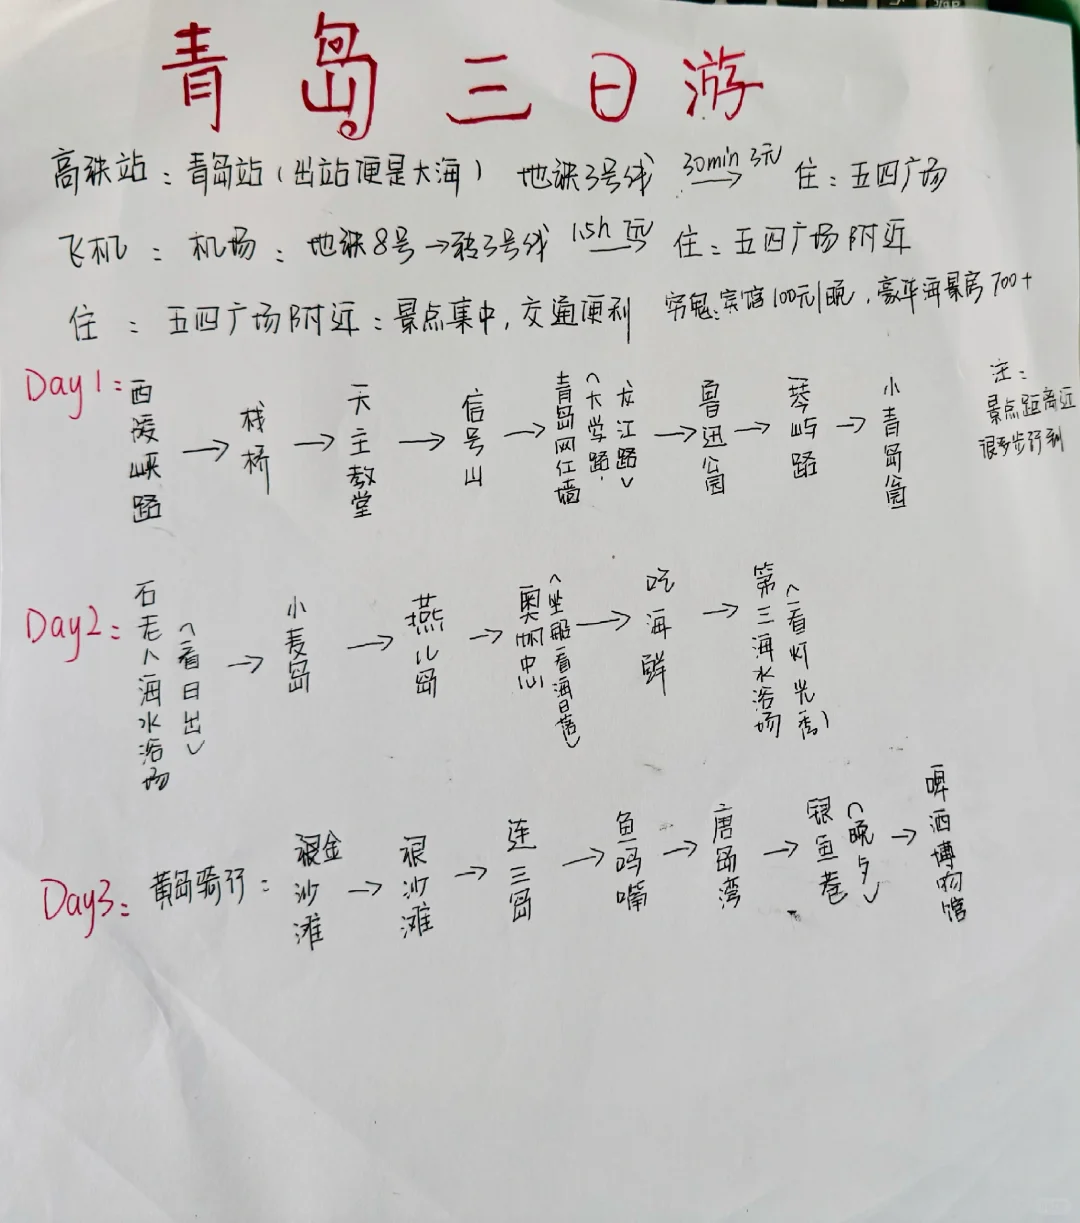 青岛三日游
高铁站：青岛站（出站便是大海） 地铁3号线 30min 3元→ 住：五四广场
飞机：机场：地铁8号→转3号线 1.5h 7元→ 住：五四广场附近
住：五四广场附近：景点集中，交通便利 穷鬼：宾馆100元/晚，豪华海景房700+
Day1：西陵峡路→栈桥→天主教堂→信号山→青岛网红墙（大学路，龙江路）→鲁迅公园→琴屿路→小青岛公园
注：
景点距离近
很多步行到
Day2：石老人海水浴场（看日出）→小麦岛→燕儿岛→奥帆中心（坐船看海日落）→吃海鲜→第三海水浴场（看灯光秀）
Day3：黄岛骑行：金沙滩→银沙滩→连三岛→鱼鸣嘴→唐岛湾→银鱼巷（晚夕）→啤酒博物馆